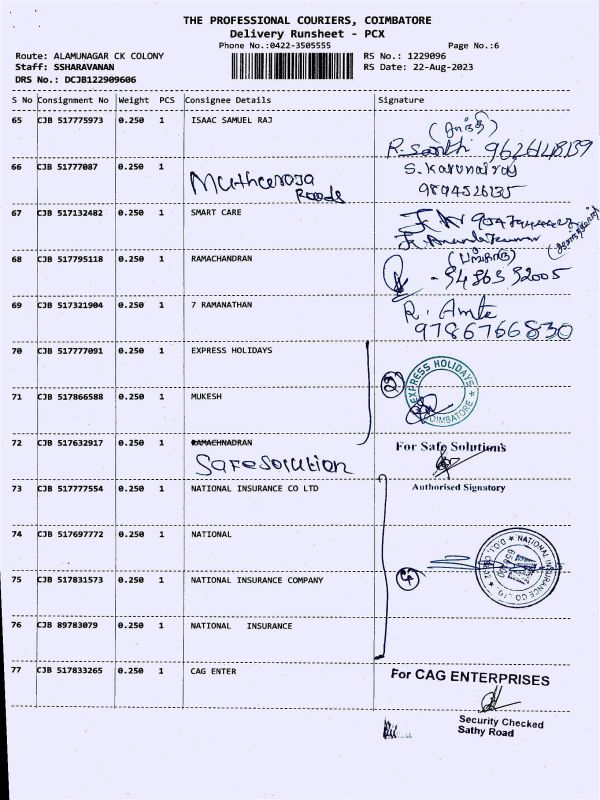 THE PROFESSIONAL COURIERS, COIMBATORE
Delivery Runsheet - PCX
Phone No.:0422-3505555
Page No.:6
Route: ALAMUNAGAR CK COLONY
RS No.: 1229096
Staff: SSHARAVANAN
RS Date: 22-Aug-2023
DRS No.: DCJB122909606
S No Consignment No Weight PCS Consignee Details Signature
65 CJB 517775973 0.250 1 ISAAC SAMUEL RAJ
66 CJB 51777087 0.250 1
S. Karunairaj
9894526135
67 CJB 517132482 0.250 1 SMART CARE
68 CJB 517795118 0.250 1 RAMACHANDRAN
- 94863 92005
69 CJB 517321904 0.250 1 7 RAMANATHAN
9786766830
70 CJB 517777091 0.250 1 EXPRESS HOLIDAYS
EXPRESS HOLIDAYS
COIMBATORE
71 CJB 517866588 0.250 1 MUKESH
72 CJB 517632917 0.250 1 RAMACHNADRAN
Safesolution
For Safe Solutions
Authorised Signatory
73 CJB 517777554 0.250 1 NATIONAL INSURANCE CO LTD
74 CJB 517697772 0.250 1 NATIONAL
NATIONAL INSURANCE CO LTD
75 CJB 517831573 0.250 1 NATIONAL INSURANCE COMPANY
76 CJB 89783079 0.250 1 NATIONAL INSURANCE
77 CJB 517833265 0.250 1 CAG ENTER
For CAG ENTERPRISES
Security Checked
Sathy Road